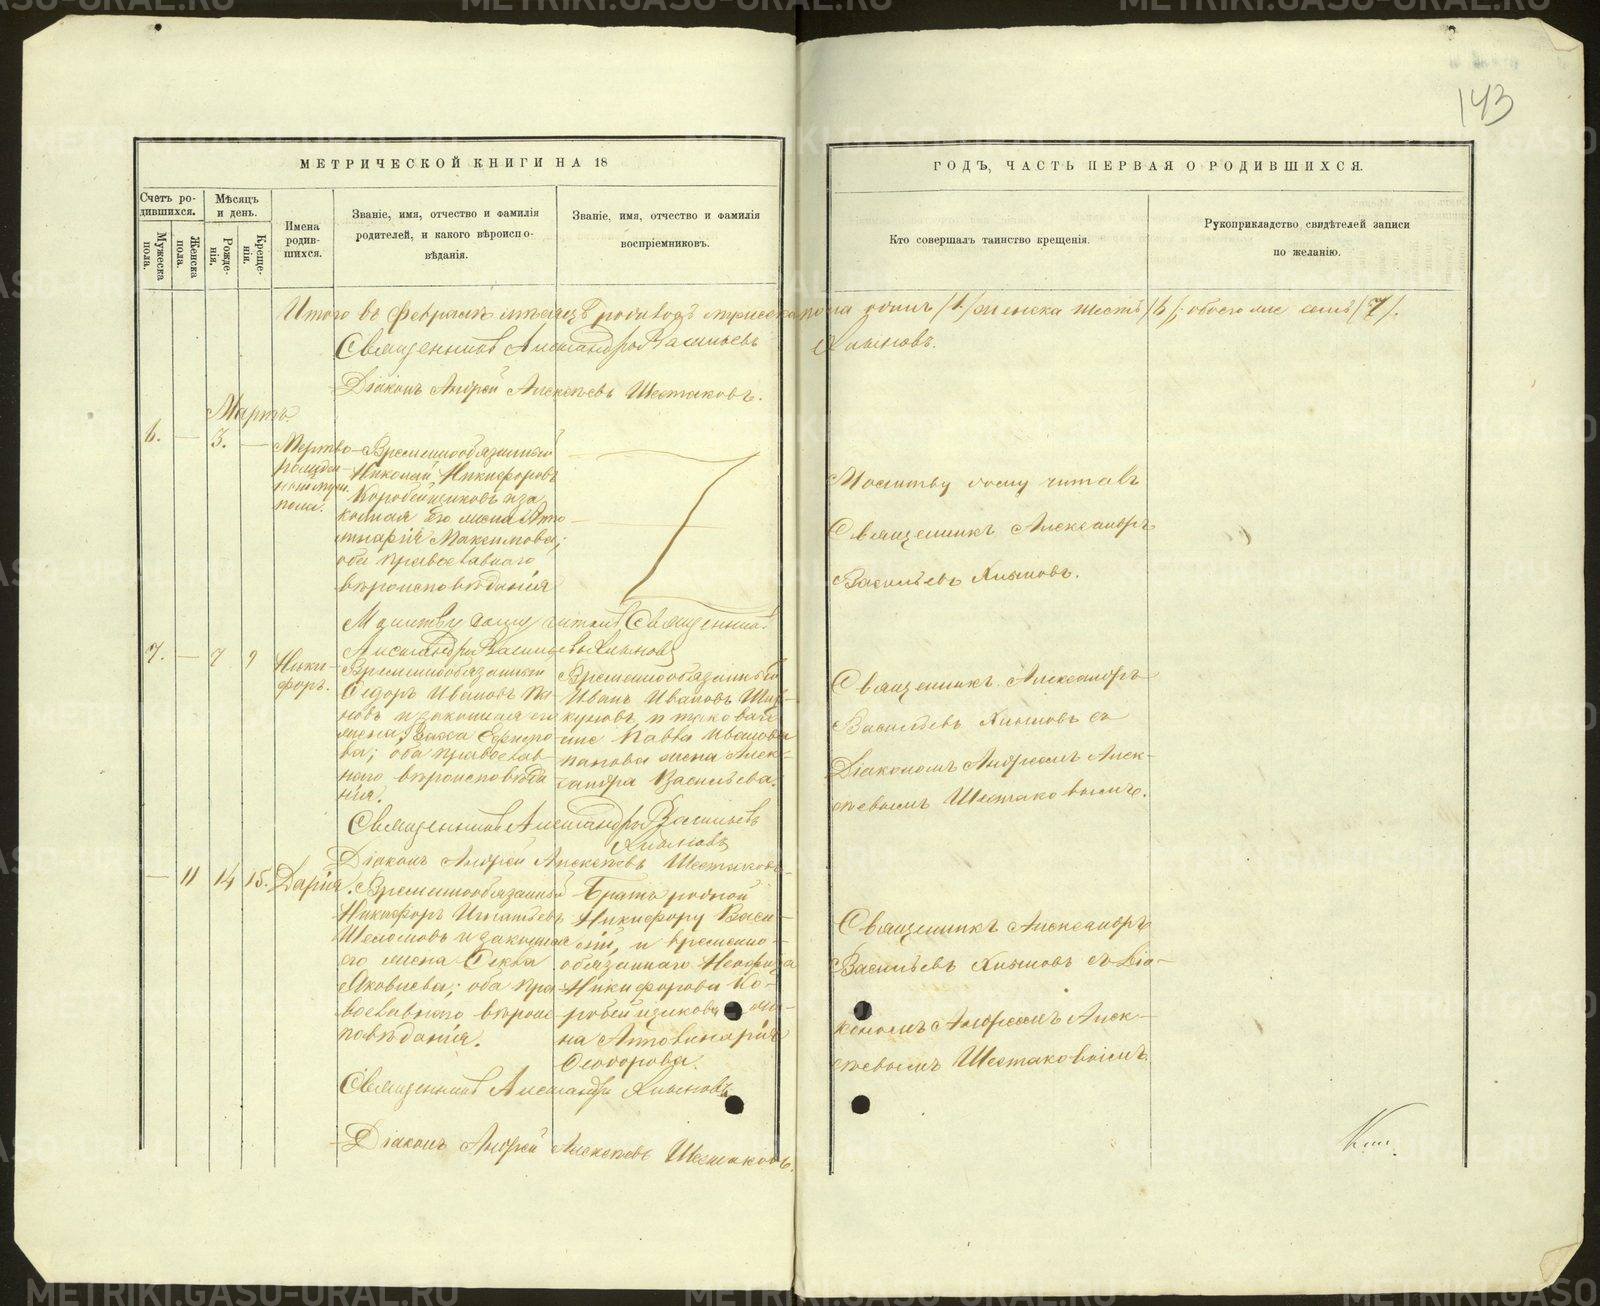 143
МЕТРИЧЕСКОЙ КНИГИ НА 18
ГОДЪ, ЧАСТЬ ПЕРВАЯ О РОДИВШИХСЯ.
Счетъ родившихся.
Мужеска пола.
Женска пола.
Мѣсяцъ и день.
Рожденія.
Крещенія.
Имена родившихся.
Званіе, имя, отчество и фамилія
родителей, и какого вѣроиспо-
вѣданія.
Званіе, имя, отчество и фамилія
воспріемниковъ.
Кто совершалъ таинство крещенія.
Рукоприкладство свидѣтелей записи
по желанію.
Итого въ Февралѣ мѣсяцѣ родилось мужеска пола одинъ /1/ женска шесть /6/, обоего же семь /7/.
Священникъ Александръ Васильевъ
Діаконъ Андрей Алексѣевъ Шестаковъ.
Мартъ.
6. — 3. —
Мертво-
рожден-
Временнообязанный
Николай Никифоровъ
Коробейщиковъ и за
конная его жена Апо
линарія Максимова;
оба православнаго
вѣроисповѣданія
Молитву оному читалъ
Священникъ Александръ
Васильевъ
Молитву оному читалъ Священникъ
Александръ Васильевъ
7. — 7 9
Ники-
форъ.
Временнообязанный
Ѳедоръ Ивановъ Па
новъ и законная его
ва; оба православ-
наго вѣроисповѣда
нія.
Временнообязанный
Иванъ Ивановъ
Павла Иванова
Панова жена Алек-
сандра Васильева.
Священникъ Александръ
Васильевъ
Діакономъ Андреемъ Алек-
сѣевымъ Шестаковымъ.
Священникъ Александръ Васильевъ
Діаконъ Андрей Алексѣевъ Шестаковъ
— 11 14 15.
Дарія.
Временнообязанный
Никифоръ Игнатьевъ
и законная
его жена Ѳекла
Яковлева; оба пра-
вославнаго вѣроис
повѣданія.
Братъ родной
Никифору Васи-
лій, и временно-
обязаннаго
Никифорова Ко-
робейщикова же-
на Апполинарія
Ѳеодорова.
Священникъ Александръ
Васильевъ съ Діа-
кономъ Андреемъ Алек-
сѣевымъ Шестаковымъ.
Священникъ Александръ
Діаконъ Андрей Алексѣевъ Шестаковъ.
METRIKI.GASU-URAL.RU